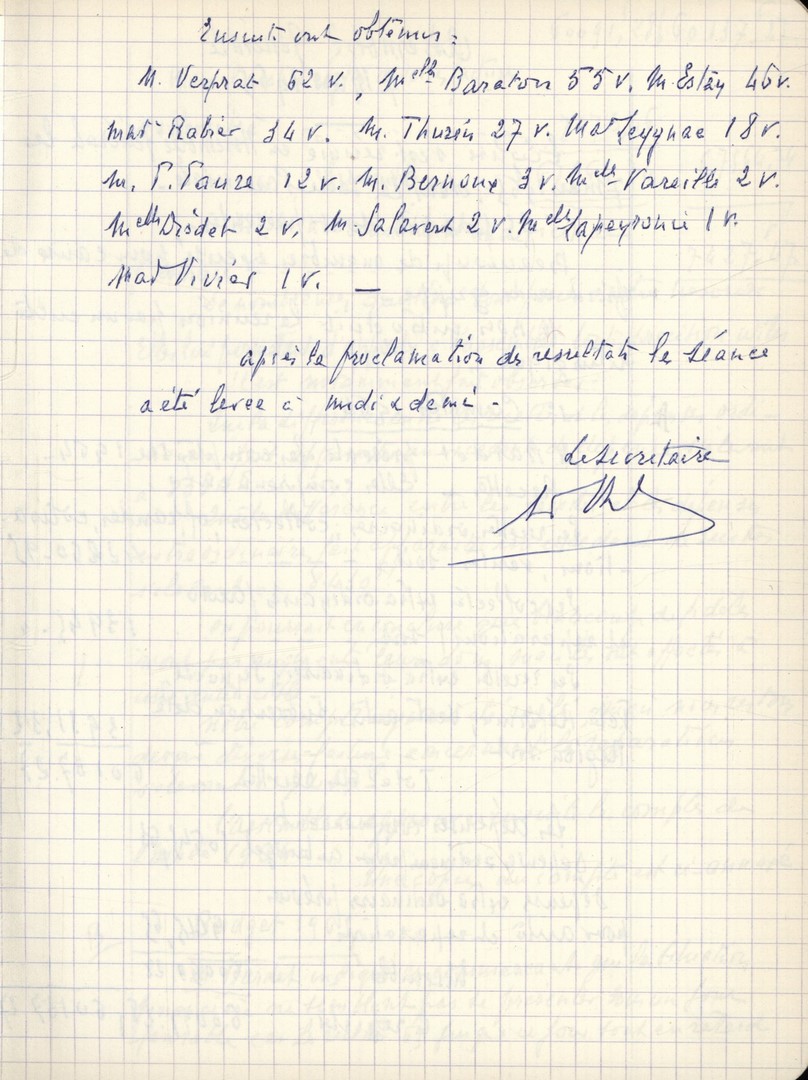 Ensuite ont obtenus :
M. Verprat 62 v., Melle Baraton 55 v, M. Estay 45 v.
Mad Rabier 34 v. M. Thurin 27 v. Mad Leygnac 18 v.
M. F. Faure 12 v. M. Bernoux 3 v. Melle Vareille 2 v.
Melle Diodet 2 v, M. Salavert 2 v. Melle Lapeyronie 1 v.
Mad Vivier 1 v. —
après la proclamation des resultats la séance
a été levee à midi & demi -
Le secretaire